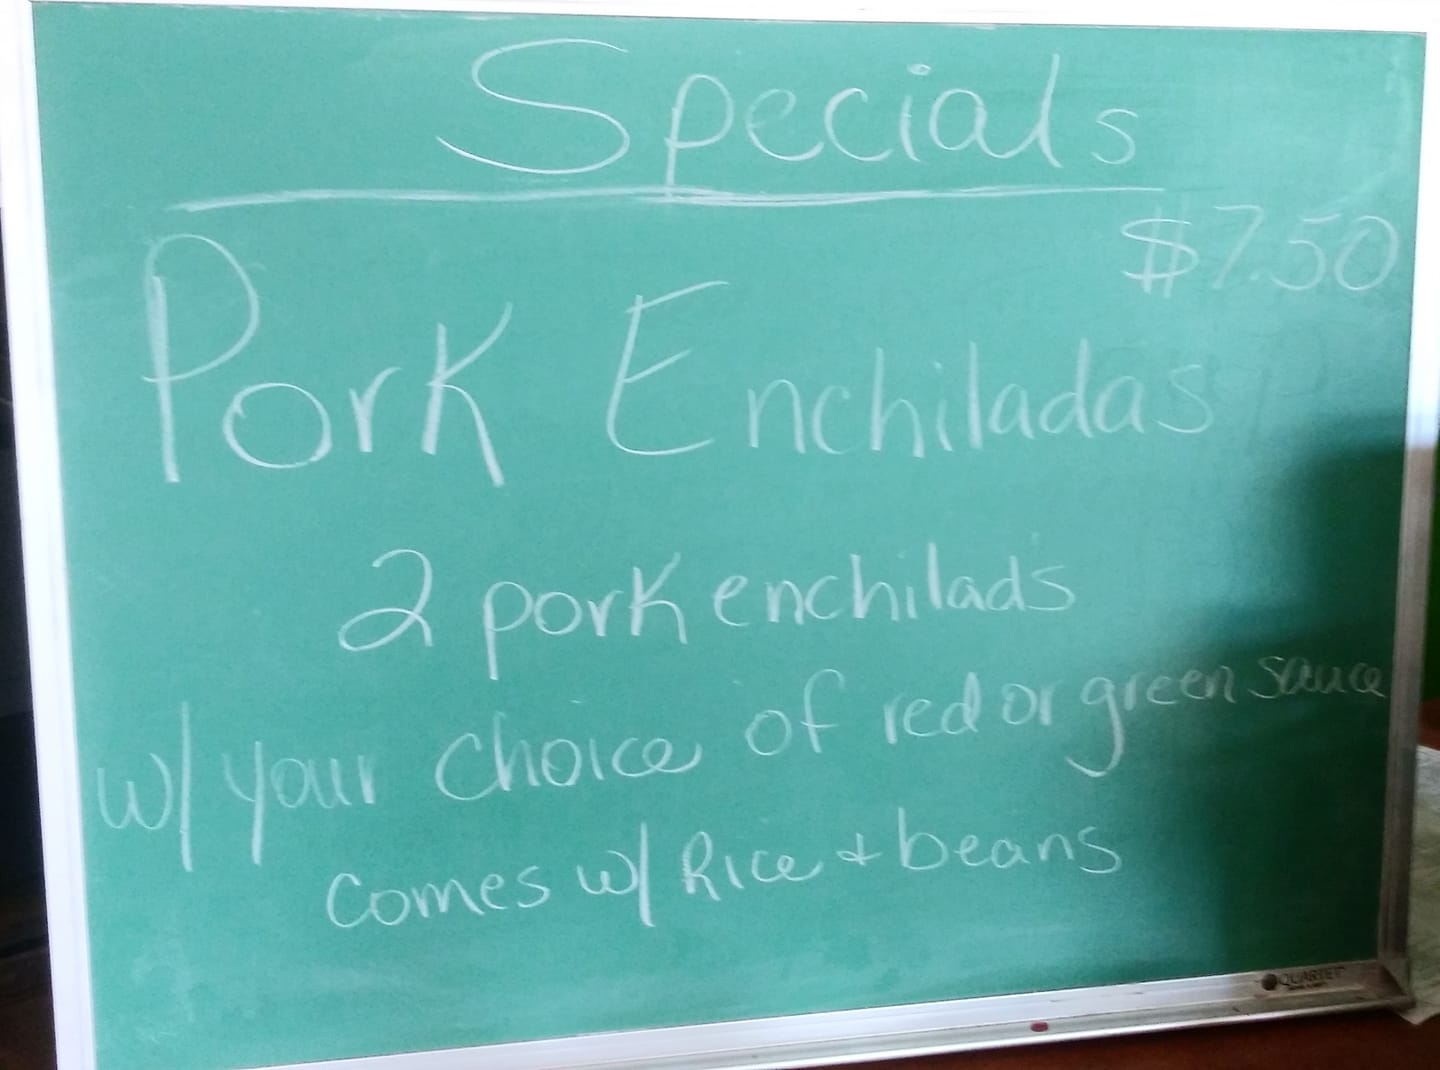 Specials
$7.50
Pork Enchiladas
2 pork enchilads
w/ your choice of red or green sauce
comes w/ Rice + beans
QUARTET